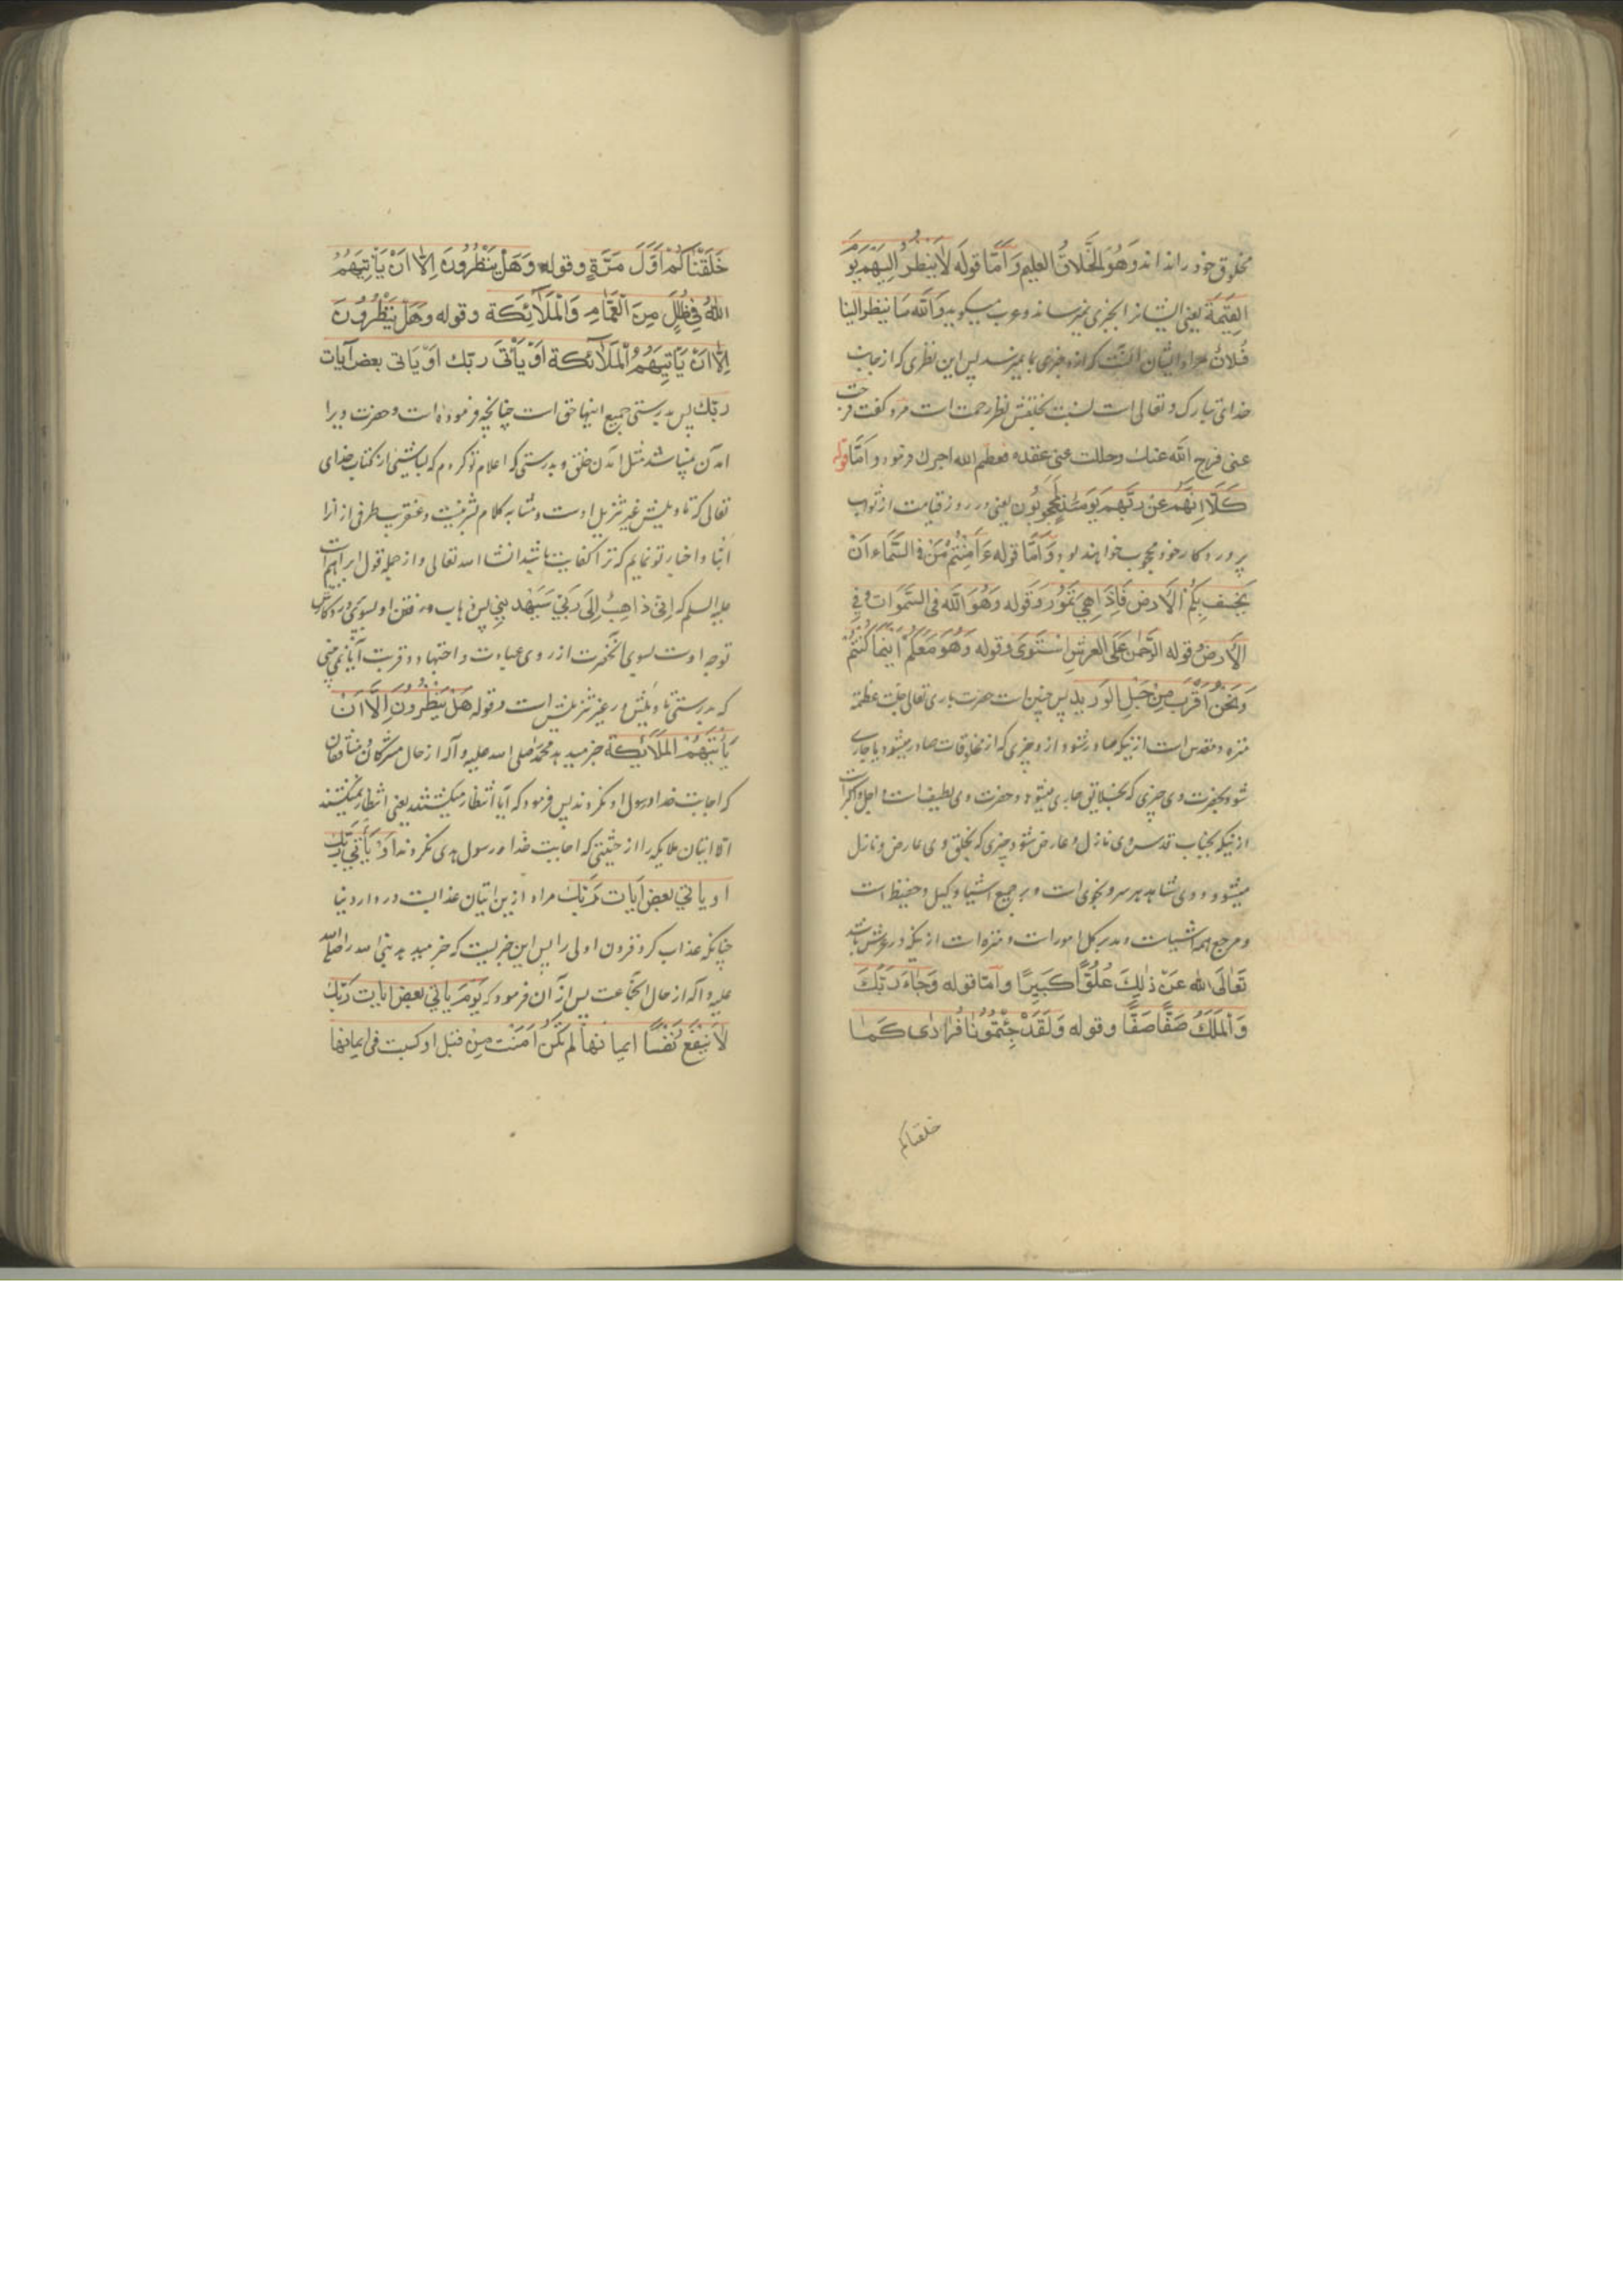 مخلوق خود را نداند وَهُوَ الخَلّاقُ العليم وَ اَمّا قوله لاٰ يَنظُرُ اِلَيهِم يَوْمَ
القِيٰمَة يعنى ايشانرا بخيرى نميرساند و عرب ميگويد وَالله مَا ينظر الينا
فُلانٌ مراد ايشان آنست كه ازو خيرى بما نميرسد پس اين نظرى كه از جانب
خداى تبارك و تعالى است نسبت بخلقش نظر رحمت است مرد گفت فرجت
عنى فرج الله عنك و حللت عنى عقدة فعظم الله اجرك فرمود و امّا قوله
كَلّا اِنَّهُم عَنْ رَبِّهِم يَوْمَئِذٍ لَمَحجُوبُون يعنى در روز قيامت از ثواب
پروردكار خود محجوب خواهند بود وَ اَمّا قوله ءَاَمِنْتُمْ مَنْ فِى السَّمَاءِ اَنْ
يَخْسِفَ بِكُمُ الاَرض فَاِذَا هِيَ تَمُوُر وَ قوله وَهُوَ الله فى السَّمٰوات وَ فِي
الاَرض و قوله الرَّحْمٰن عَلَى العَرشِ اسْتَوٰى و قوله وَهُوَ مَعَكُمْ اَيْنَمَا كُنْتُمْ
وَنَحْنُ اَقْرَبُ مِنْ حَبْلِ الوَريد پس چنين است حضرت بارى تعالى جلت عظمته
منزه و مقدس است ازينكه صادر شود ازو چيزى كه از مخلوقات صادر ميشود يا جارى
شود بحضرت وى چيزى كه بخلايق جارى ميشود و حضرت وى لطيف است و اجل و اكبر است
ازينكه بجناب قدس وى نازل و عارض شود چيزى كه بخلق وى عارض و نازل
ميشود و وى شاهد هر سر و نجوى است و بر جميع اشيا وكيل و حفيظ است
و مرجع همه اشياست و مدبر كل امورات و منزه است ازينكه در عرش باشد
تَعٰالَى الله عَنْ ذٰلِكَ عُلُوًّا كَبيرًا و اَمّا قوله وَجَاءَ رَبُّكَ
وَالمَلَكُ صَفًّا صَفًّا و قوله وَلَقَدْ جِئْتُمُونَا فُرَادٰى كَمٰا
خلقناكم
خَلَقْنَاكُمْ اَوَّلَ مَرَّةٍ و قوله وَهَلْ يَنْظُرُونَ اِلاّ اَنْ يَأْتِيَهُمُ
اللهُ فِي ظُلَلٍ مِنَ الْغَمٰامِ وَالْمَلٰائِكَة و قوله و هَل يَنْظُرُونَ
اِلاّ اَنْ يَاْتِيَهُمُ الْمَلٰائِكة اَوْ يَأْتِىَ ربّك اَوْ يَاتى بعض آيات
ربّك پس بدرستى جميع اينها حق است چنانچه فرموده است و حضرت ويرا
امدن نميباشد مثل امدن خلق و بدرستى كه اعلام تو كردم كه بسا شيئى از كتاب خداى
تعالى كه تاويلش غير تنزيل اوست و مشابه كلام بشر نيست و عنقريب طرفى از انرا
انبا و اخبار تو نمايم كه ترا كفايت باشد انشا الله تعالى و از جمله قول ابراهيم است
عليه السلم كه اِنّى ذاهِبٌ اِلىَ رَبّي سَيَهْدِينِ پس ذهاب و رفتن او بسوى پروردكارش
توجه اوست بسوى آنحضرت از روى عبادت و اجتهاد و قربت آيا نمى بينى
كه بدرستى تاويلش در غير تنزيلش است و قوله هَلْ يَنْظُرُونَ اِلاّ اَنْ
يَأتِيَهُمُ المَلٰائِكة خبر ميدهد محمد صلى الله عليه و آله از حال مشركان و منافقان
كه اجابت خدا و رسول او نكردند پس فرمود كه آيا انتظار ميكشند يعنى انتظار نميكشند
الا اتيان ملايكه را از حيثيتى كه اجابت خدا و رسول وى نكردند اَوْ يَأْتِي رَبُّكَ
او ياتي بعض آيات ربّك مراد ازين اتيان عذابست در دار دنيا
چنانكه عذاب كرد قرون اولى را پس اين خبريست كه خبر ميدهد بنى الله را صلى الله
عليه و آله از حال انجماعت پس از آن فرمود كه يَومَ يأتي بعض ايات ربّك
لاٰ يَنفَعُ نَفْسًا ايمانهٰا لَمْ تَكُنْ اٰمَنَتْ مِنْ قبل او كسبت فى ايمانها